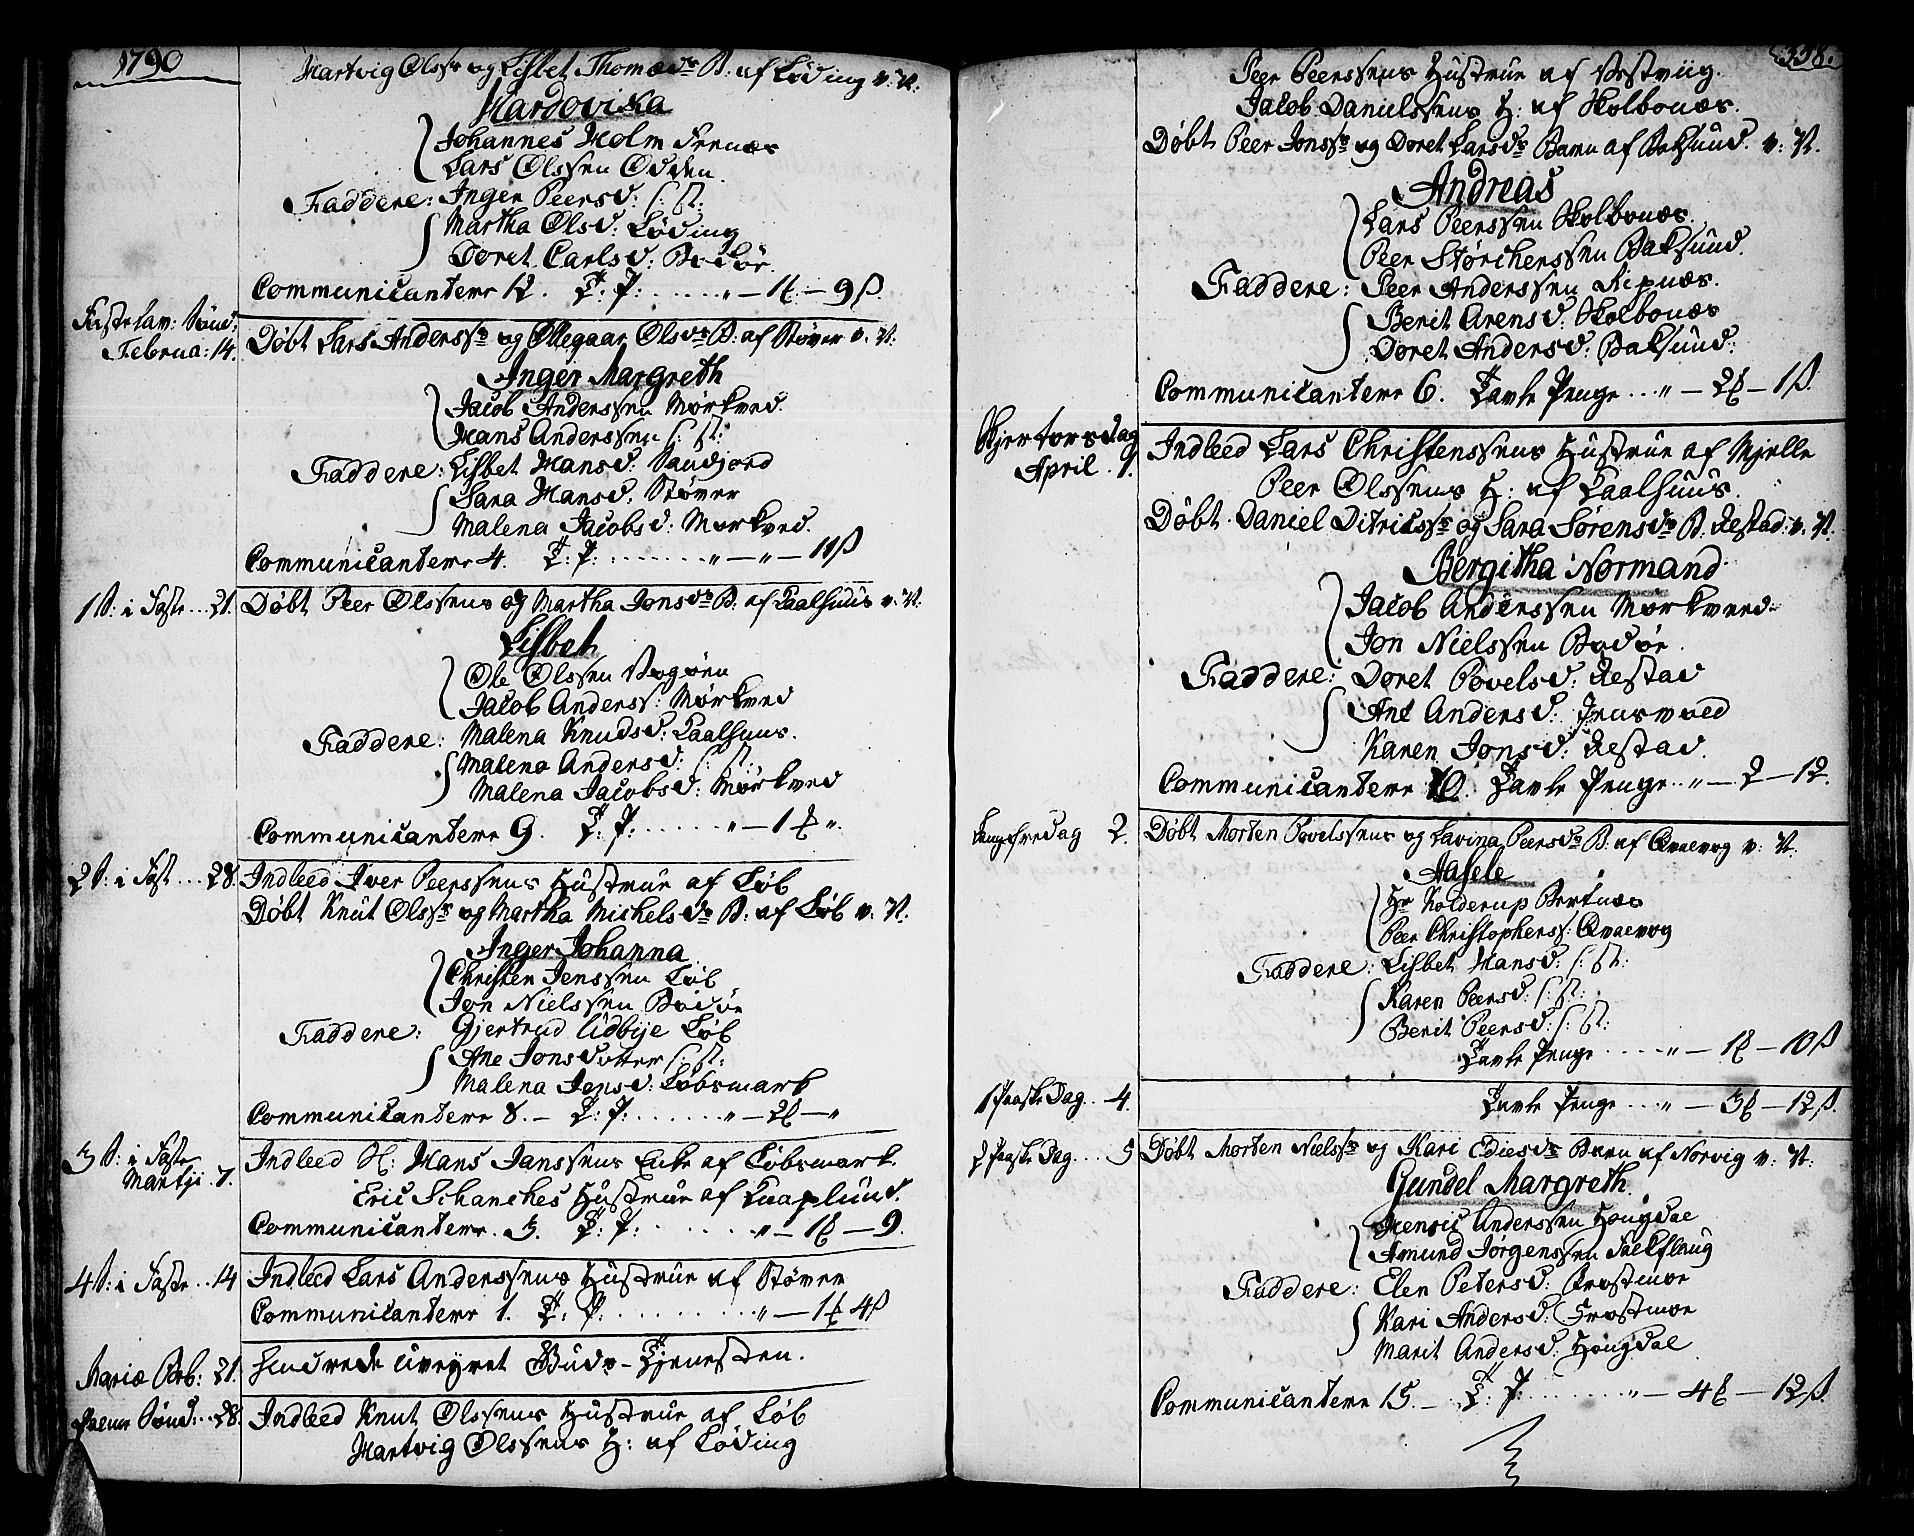 1790
Hartvig Olss: og Lisbet Thomæd: B: af Løding v: N.
Hardovika
Johannes Holm Fenæs
Lars Olssen Odden
Faddere: Inger Peersd: S: St:
Martha Olsd: Løding
Doret Carlsd: Bodør
Communicantere 12. T: P: ..... " — 1 — 9 ß.
Fastelav: Sønd:
Februa: 14.
Døbt Lars Anderss: og Ollegaar Olsd: B: af Støver v: N:
Inger Margreth
Jacob Anderssen Mørkved.
Hans Anderssen S: St:
Faddere: Lisbet Hansd: Saudjord
Sara Hansd. Støver
Malena Jacobsd: Mørkved.
Communicantere 4. T: P: ...... " — " — 11 ß
1 S: i Faste ... 21.
Døbt Peer Olssens og Martha Jonsd: B: af Laalhuus v: N.
Lisbet
Ole Olssen Vogøen
Jacob Anderss: Mørkved
Faddere: Malena Knudsd: Laalhuus.
Malena Andersd: S: St:
Malena Jacobsd: Mørkved
Communicantere 9. T: P: ...... " — 1 ".
2 S: i Fast .... 28.
Indleed Iver Peerssens Hustrue af Løb
Døbt Knut Olss: og Martha Michelsd: B: af Løb v: N.
Inger Johanna
Christen Jenssen Løb
Jon Nielssen Bodøe
Faddere: Gjertrud Udbye Løb
Ane Jonsdotter S: St:
Malena Jonsd: Løbsmark
Communicantere 8. — T: P: ....... " — 2 — "
3 S: i Faste
Martji 7.
Indleed Sl: Hans Janssens Enke af Løbsmark.
Eric Schanches Hustrue af Knaplund.
Communicantere . 3. T: P: ....... " — 1 — 9.
4 S: i Faste .. 14
Indleed Lars Anderssens Hustrue af Støver
Communicantere 1. T: P: ........ " — 1 4 ß
Mariæ Beb: 21.
Hindrede uveyret Guds-Tjenesten.
Palme Sønd: .. 28.
Indleed Knut Olssens Hustrue af Løb
Hartvig Olssens H: af Løding
338.
Peer Peerssens Hustrue af Vestviig.
Jacob Danielssens H: af Skolbonæs.
Døbt Peer Jonss: og Doret Larsd: Barn af Baksund. v: N.
Andreas
Lars Peerssen Skolbonæs.
Peer Størchenssen Baksund.
Faddere: Peer Anderssen Ripnæs.
Berit Arensd: Skolbonæs
Doret Andersd: Baksund:
Communicantere 6. Tavle Penge ... " — 2 — 1 ß.
Skjertorsdag
April . 1.
Indleed Lars Christenssens Hustrue af Mjelle
Peer Olssens H: af Laalhuus.
Døbt Daniel Ditricss: og Sara Sørensd: B: Restad: v: N.
Bergitha Normand
Jacob Anderssen Mørkved:
Jon Nielssen Bodøe.
Faddere: Doret Povelsd: Restad
Ane Andersd: Jensvold
Karen Jonsd: Restad.
Communicantere 10. Tavle Penge .. " — 2 — 12.
Langfredag 2.
Døbt Morten Povelssens og Lavina Peersd: B: af Qvaevog v: N.
Aasele
Hr Kolderup Bertnæs
Peer Christophers: Qvaevog
Faddere: Lisbet Hansd: S: St:
Karen Peersd: S: St:
Berit Peersd: S: St:
Tavle Penge .... " — 1 — 10 ß
1 Paaske Dag .. 4.
Tavle Penge ... " — 3 — 12 ß.
2 Paaske Dag ... 5
Døbt Morten Nielss: og Kari Ediesd: Barn af Norvig v: N:
Gundel Margreth
Hensic Anderssen Hougdal
Amund Jørgenssen Falkflaug
Faddere: Elen Petersd: Frostmoe
Kari Andersd: Frostmoe
Marit Andersd: Hougdal
Communicantere 15. — T: P: ....... " — 4 — 12 ß.